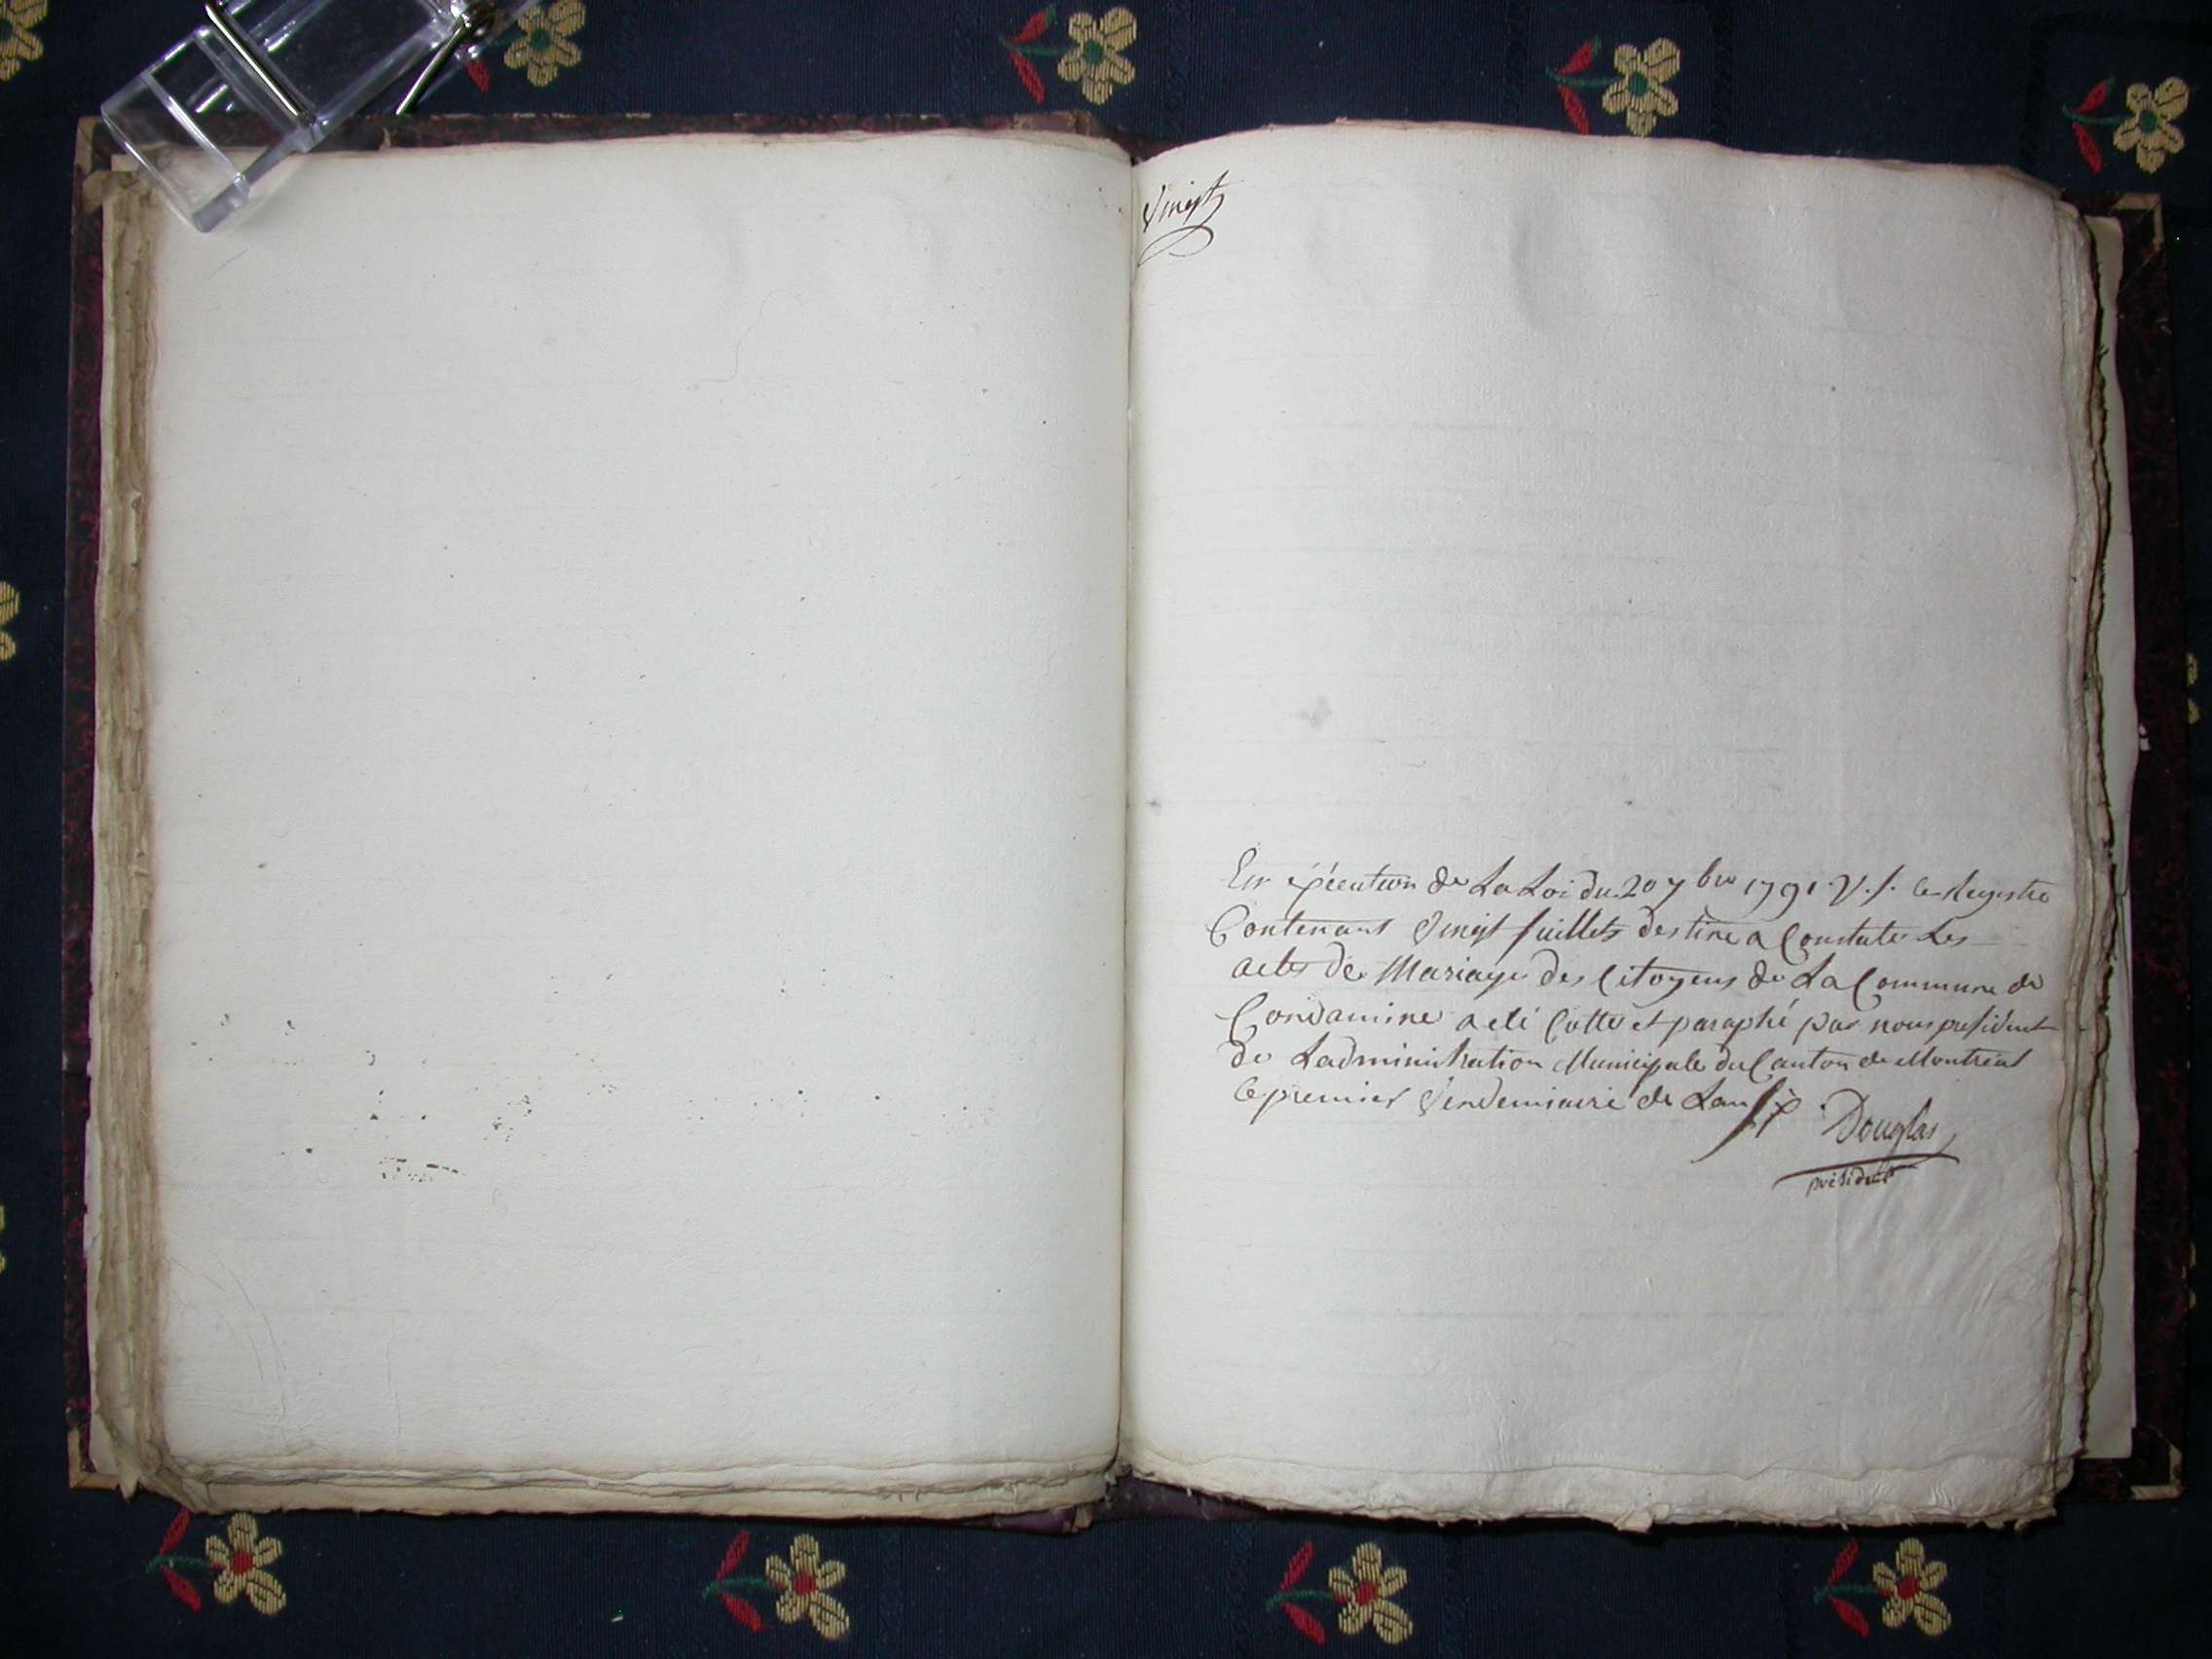 Vingt
En éxécution de La Loi du 20 7bre 1791. V. s. le Registre
Contenant Vingt feuillets destiné a Constater Les
actes de Mariage des Citoyens de La Commune de
Condamine a eté Cotté et paraphé par nous president
de Ladministration Municipale du Canton de Montréal
le premier Vendemiaire de Lan Six.
Douglas
président